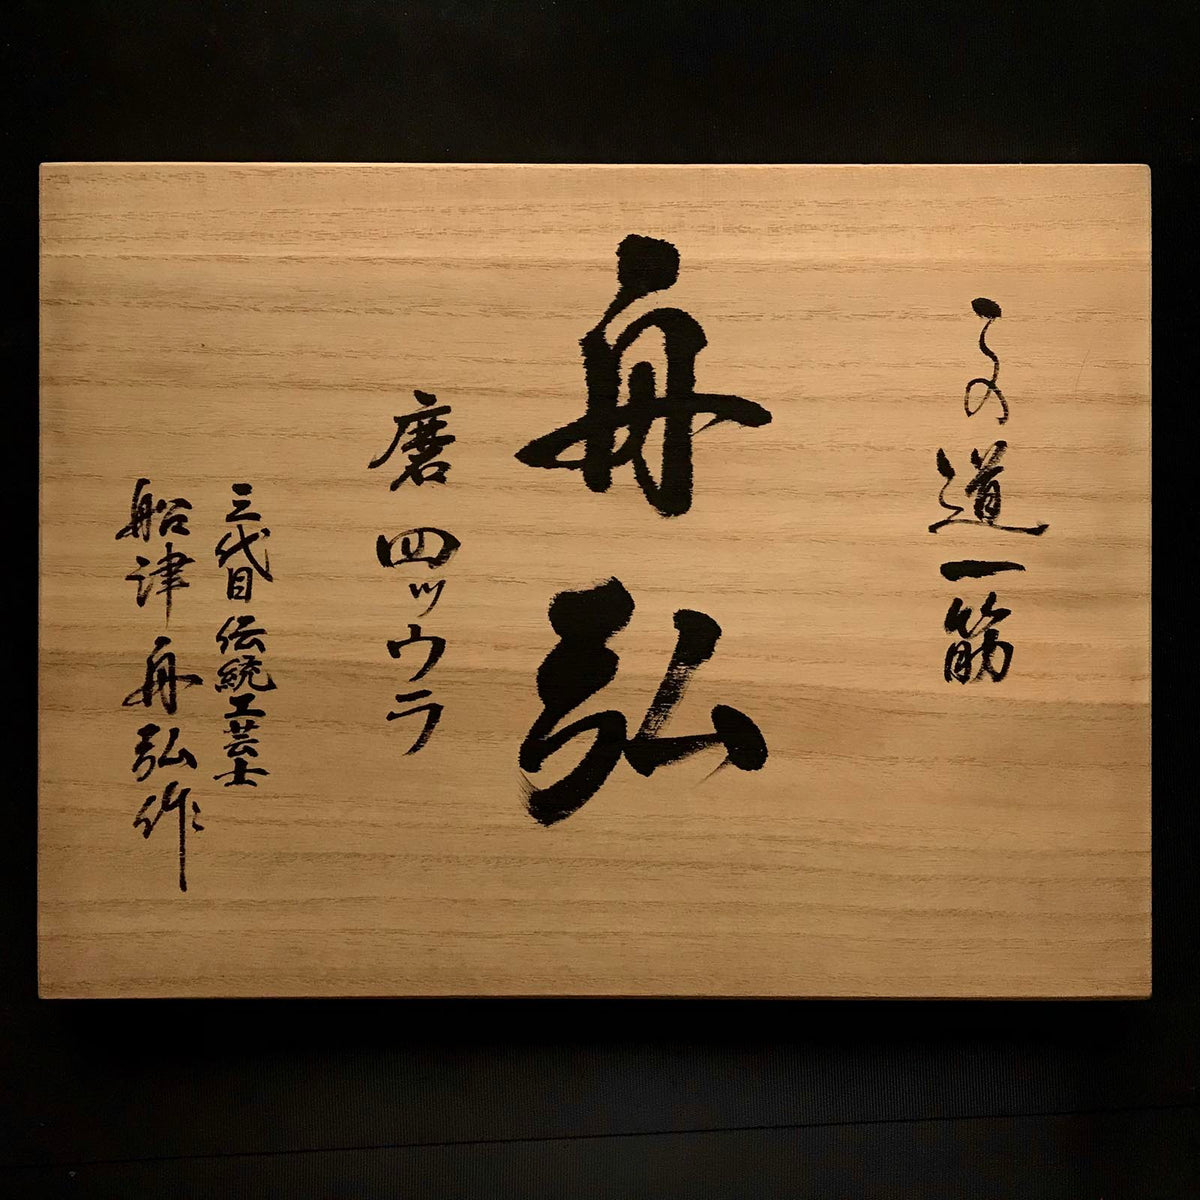 この道一筋
舟弘
磨四ッウラ
三代目伝統工芸士
船津舟弘作